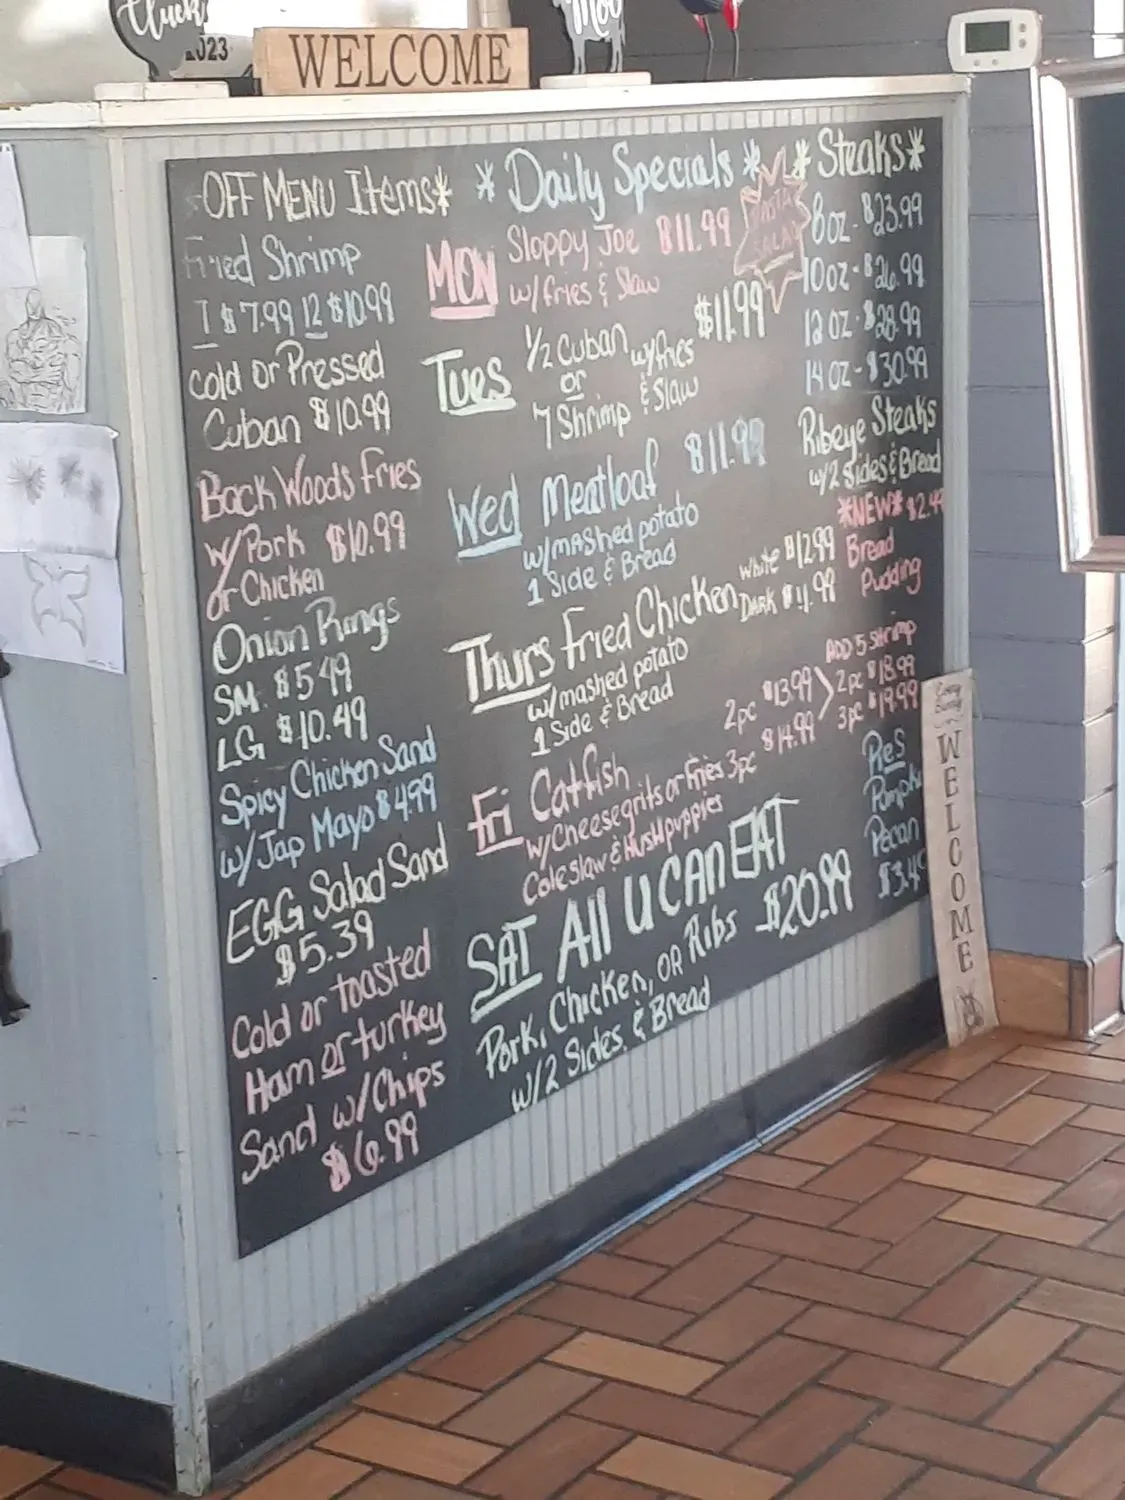 Cluck
2023
WELCOME
Moo
OFF MENU Items*
Fried Shrimp
7 $7.99 12 $10.99
Cold or Pressed
Cuban $10.99
Back Woods Fries
w/Pork $10.99
or Chicken
Onion Rings
SM. $5.49
LG $10.49
Spicy Chicken Sand
w/Jap Mayo $4.99
EGG Salad Sand
$5.39
Cold or toasted
Ham or turkey
Sand w/Chips
$6.99
* Daily Specials *
MON Sloppy Joe $11.99
w/fries & Slaw
PASTA
SALAD
Tues 1/2 Cuban w/fries $11.99
or & Slaw
7 Shrimp
Wed Meatloaf $11.99
w/mashed potato
1 Side & Bread
Thurs Fried Chicken White $12.99
DARK $11.99
w/mashed potato
1 Side & Bread
Fri Catfish 2pc $13.99
w/Cheesegrits or Fries 3pc $14.99
Coleslaw & Hushpuppies
ADD 5 shrimp
2pc $18.99
3pc $19.99
SAT All U CAN EAT
Pork, Chicken, OR Ribs $20.99
w/2 Sides & Bread
* Steaks *
8oz - $23.99
10oz - $26.99
12oz - $28.99
14oz - $30.99
Ribeye Steaks
w/2 Sides & Bread
*NEW* $2.4
Bread
Pudding
Pies
Pumpk
Pecan
$3.4
WELCOME